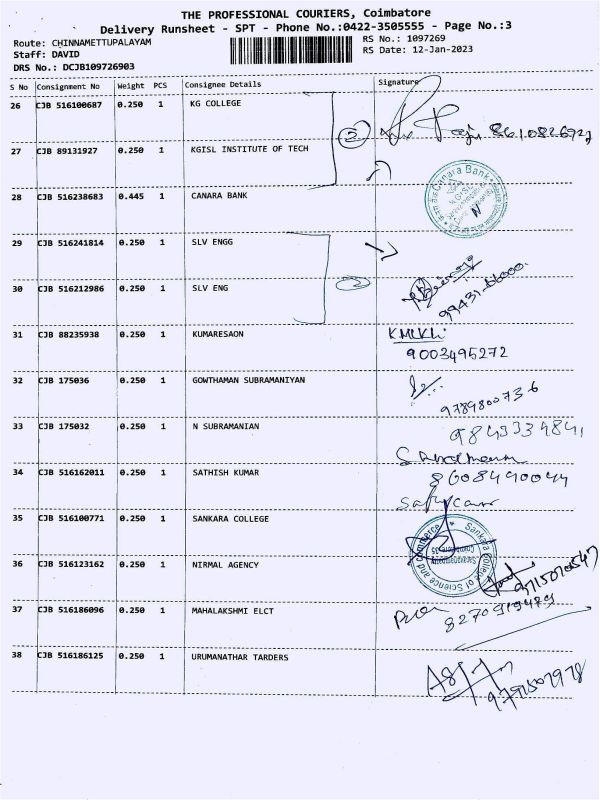 THE PROFESSIONAL COURIERS, Coimbatore
Delivery Runsheet - SPT - Phone No.:0422-3505555 - Page No.:3
Route: CHINNAMETTUPALAYAM RS No.: 1097269
Staff: DAVID RS Date: 12-Jan-2023
DRS No.: DCJB109726903
S No Consignment No Weight PCS Consignee Details Signature
26 CJB 516100687 0.250 1 KG COLLEGE
2
27 CJB 89131927 0.250 1 KGISL INSTITUTE OF TECH
28 CJB 516238683 0.445 1 CANARA BANK
Canara Bank
29 CJB 516241814 0.250 1 SLV ENGG
30 CJB 516212986 0.250 1 SLV ENG
2
31 CJB 88235938 0.250 1 KUMARESAON
9003495272
32 CJB 175036 0.250 1 GOWTHAMAN SUBRAMANIYAN
9789800736
33 CJB 175032 0.250 1 N SUBRAMANIAN
9843334841
34 CJB 516162011 0.250 1 SATHISH KUMAR
8608490044
35 CJB 516100771 0.250 1 SANKARA COLLEGE
Sankara College of Science and Commerce
36 CJB 516123162 0.250 1 NIRMAL AGENCY
37 CJB 516186096 0.250 1 MAHALAKSHMI ELCT
8270919429
38 CJB 516186125 0.250 1 URUMANATHAR TARDERS